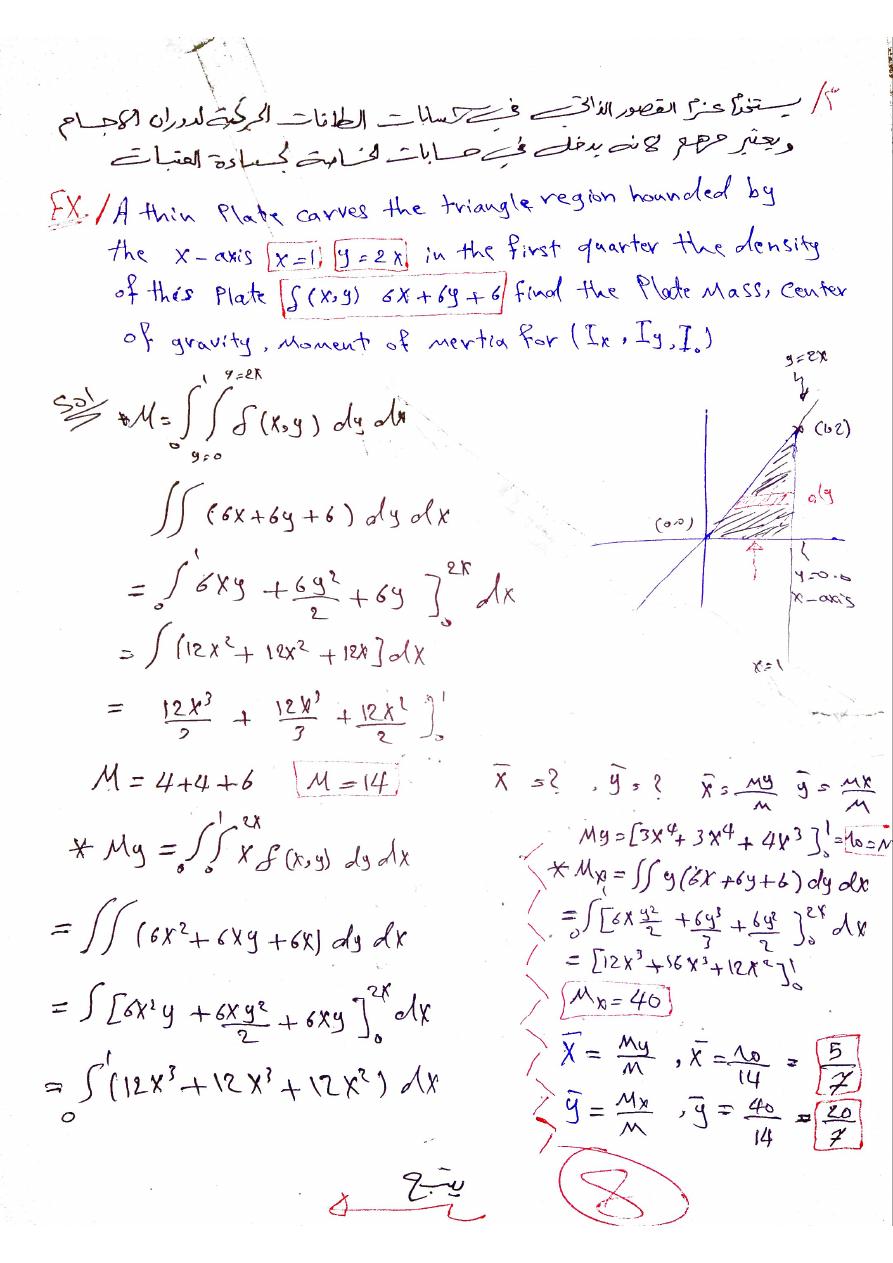 ٣/ يستخدم عزم القصور الذاتي في حسابات الطاقات الحركية لدوران الاجسام
ويعتبر مهم لانه يدخل في حسابات الخاصة لجساءة العتبات
EX./ A thin Plate carves the triangle region bounded by
the x-axis x=1, y=2x in the first quarter the density
of this Plate f(x,y) 6x+6y+6 find the Plate Mass, center
of gravity, Moment of mertia for (Ix, Iy, I.)
Sol *M = ∫₀¹ ∫_{y=0}^{y=2x} f(x,y) dy dx
∫∫ (6x+6y+6) dy dx
= ∫₀¹ 6xy + 6y²/2 + 6y ]₀^{2x} dx
= ∫ (12x² + 12x² + 12x] dx
= 12x³/3 + 12x³/3 + 12x²/2 ]₀¹
M = 4+4+6 M = 14
* My = ∫₀¹ ∫₀^{2x} x f(x,y) dy dx
= ∫∫ (6x² + 6xy + 6x) dy dx
= ∫ [6x²y + 6xy²/2 + 6xy]₀^{2x} dx
= ∫₀¹ (12x³ + 12x³ + 12x²) dx
y=2x
(1,2)
dy
(0.0)
y=0.0
x-axis
x=1
x̄ =? , ȳ =? x̄ = My/M ȳ = Mx/M
My = [3x⁴ + 3x⁴ + 4x³]₀¹ = 10 = N
* Mx = ∫∫ y(6x+6y+6) dy dx
= ∫₀¹ [6x y²/2 + 6y³/3 + 6y²/2]₀^{2x} dx
= [12x³ + 16x³ + 12x²]₀¹
Mx = 40
x̄ = My/M , x̄ = 10/14 = 5/7
ȳ = Mx/M , ȳ = 40/14 = 20/7
يتبع
8